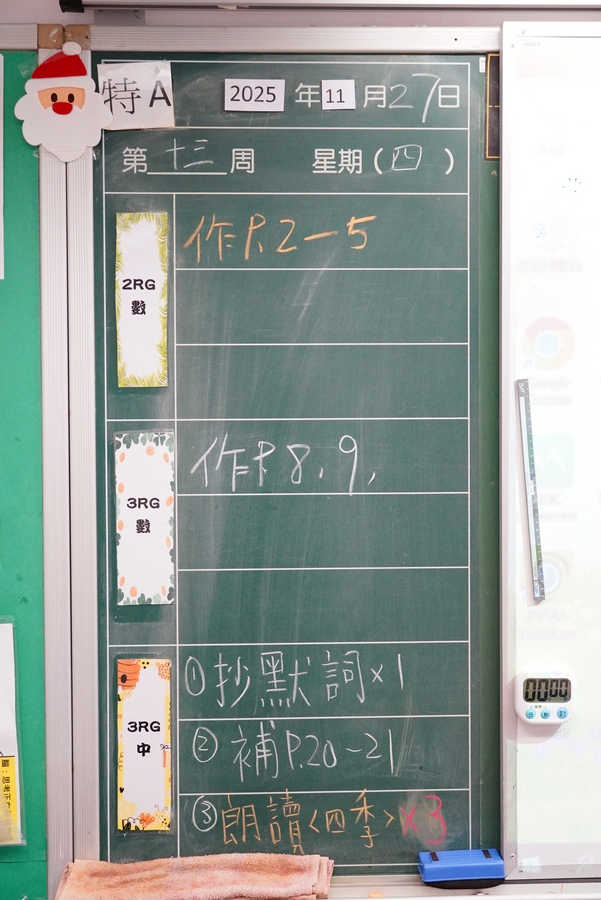 特A
2025 年 11 月 27 日
第 十三 周 星期 (四)
2RG 數
作P.2-5
3RG 數
作P.8,9,
3RG 中
①抄默詞×1
②補P.20-21
③朗讀<四季>×3
00:00